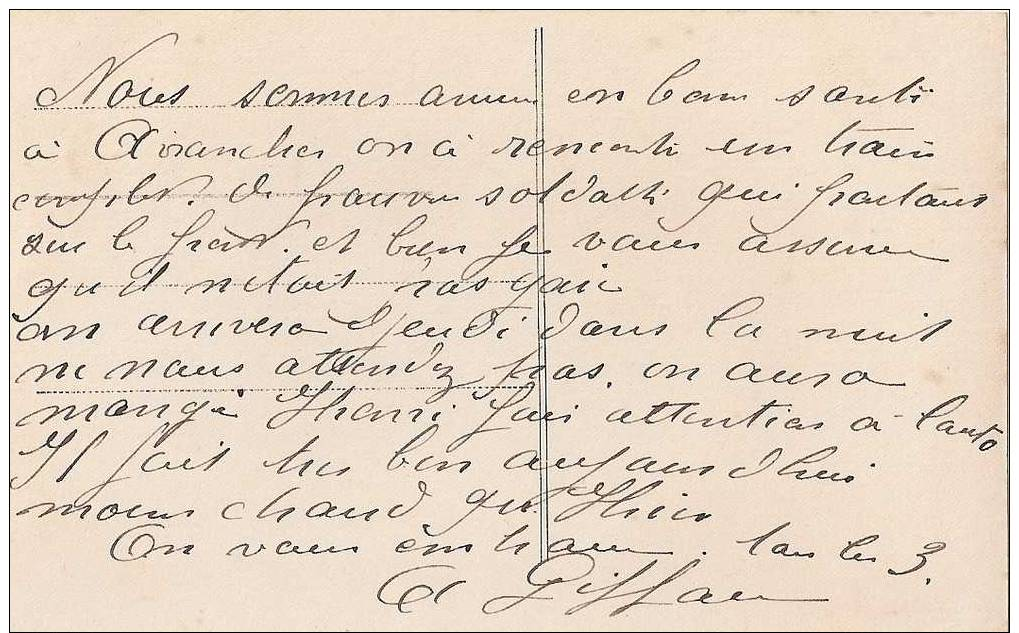 Nous sommes arrivés en bonne santé
à Avranches on à rencontré un train
complet. de pauvres soldats qui partaient
sur le front. et bien je vous assure
qu'il n'etait pas gai
on arrivera Jeudi dans la nuit
ne nous attendez pas. on aura
mangé Henri fais attention à l'auto
Il fait tres bon aujourd'hui
moins chaud qu'Hier
On vous embrasse. tous les 3.